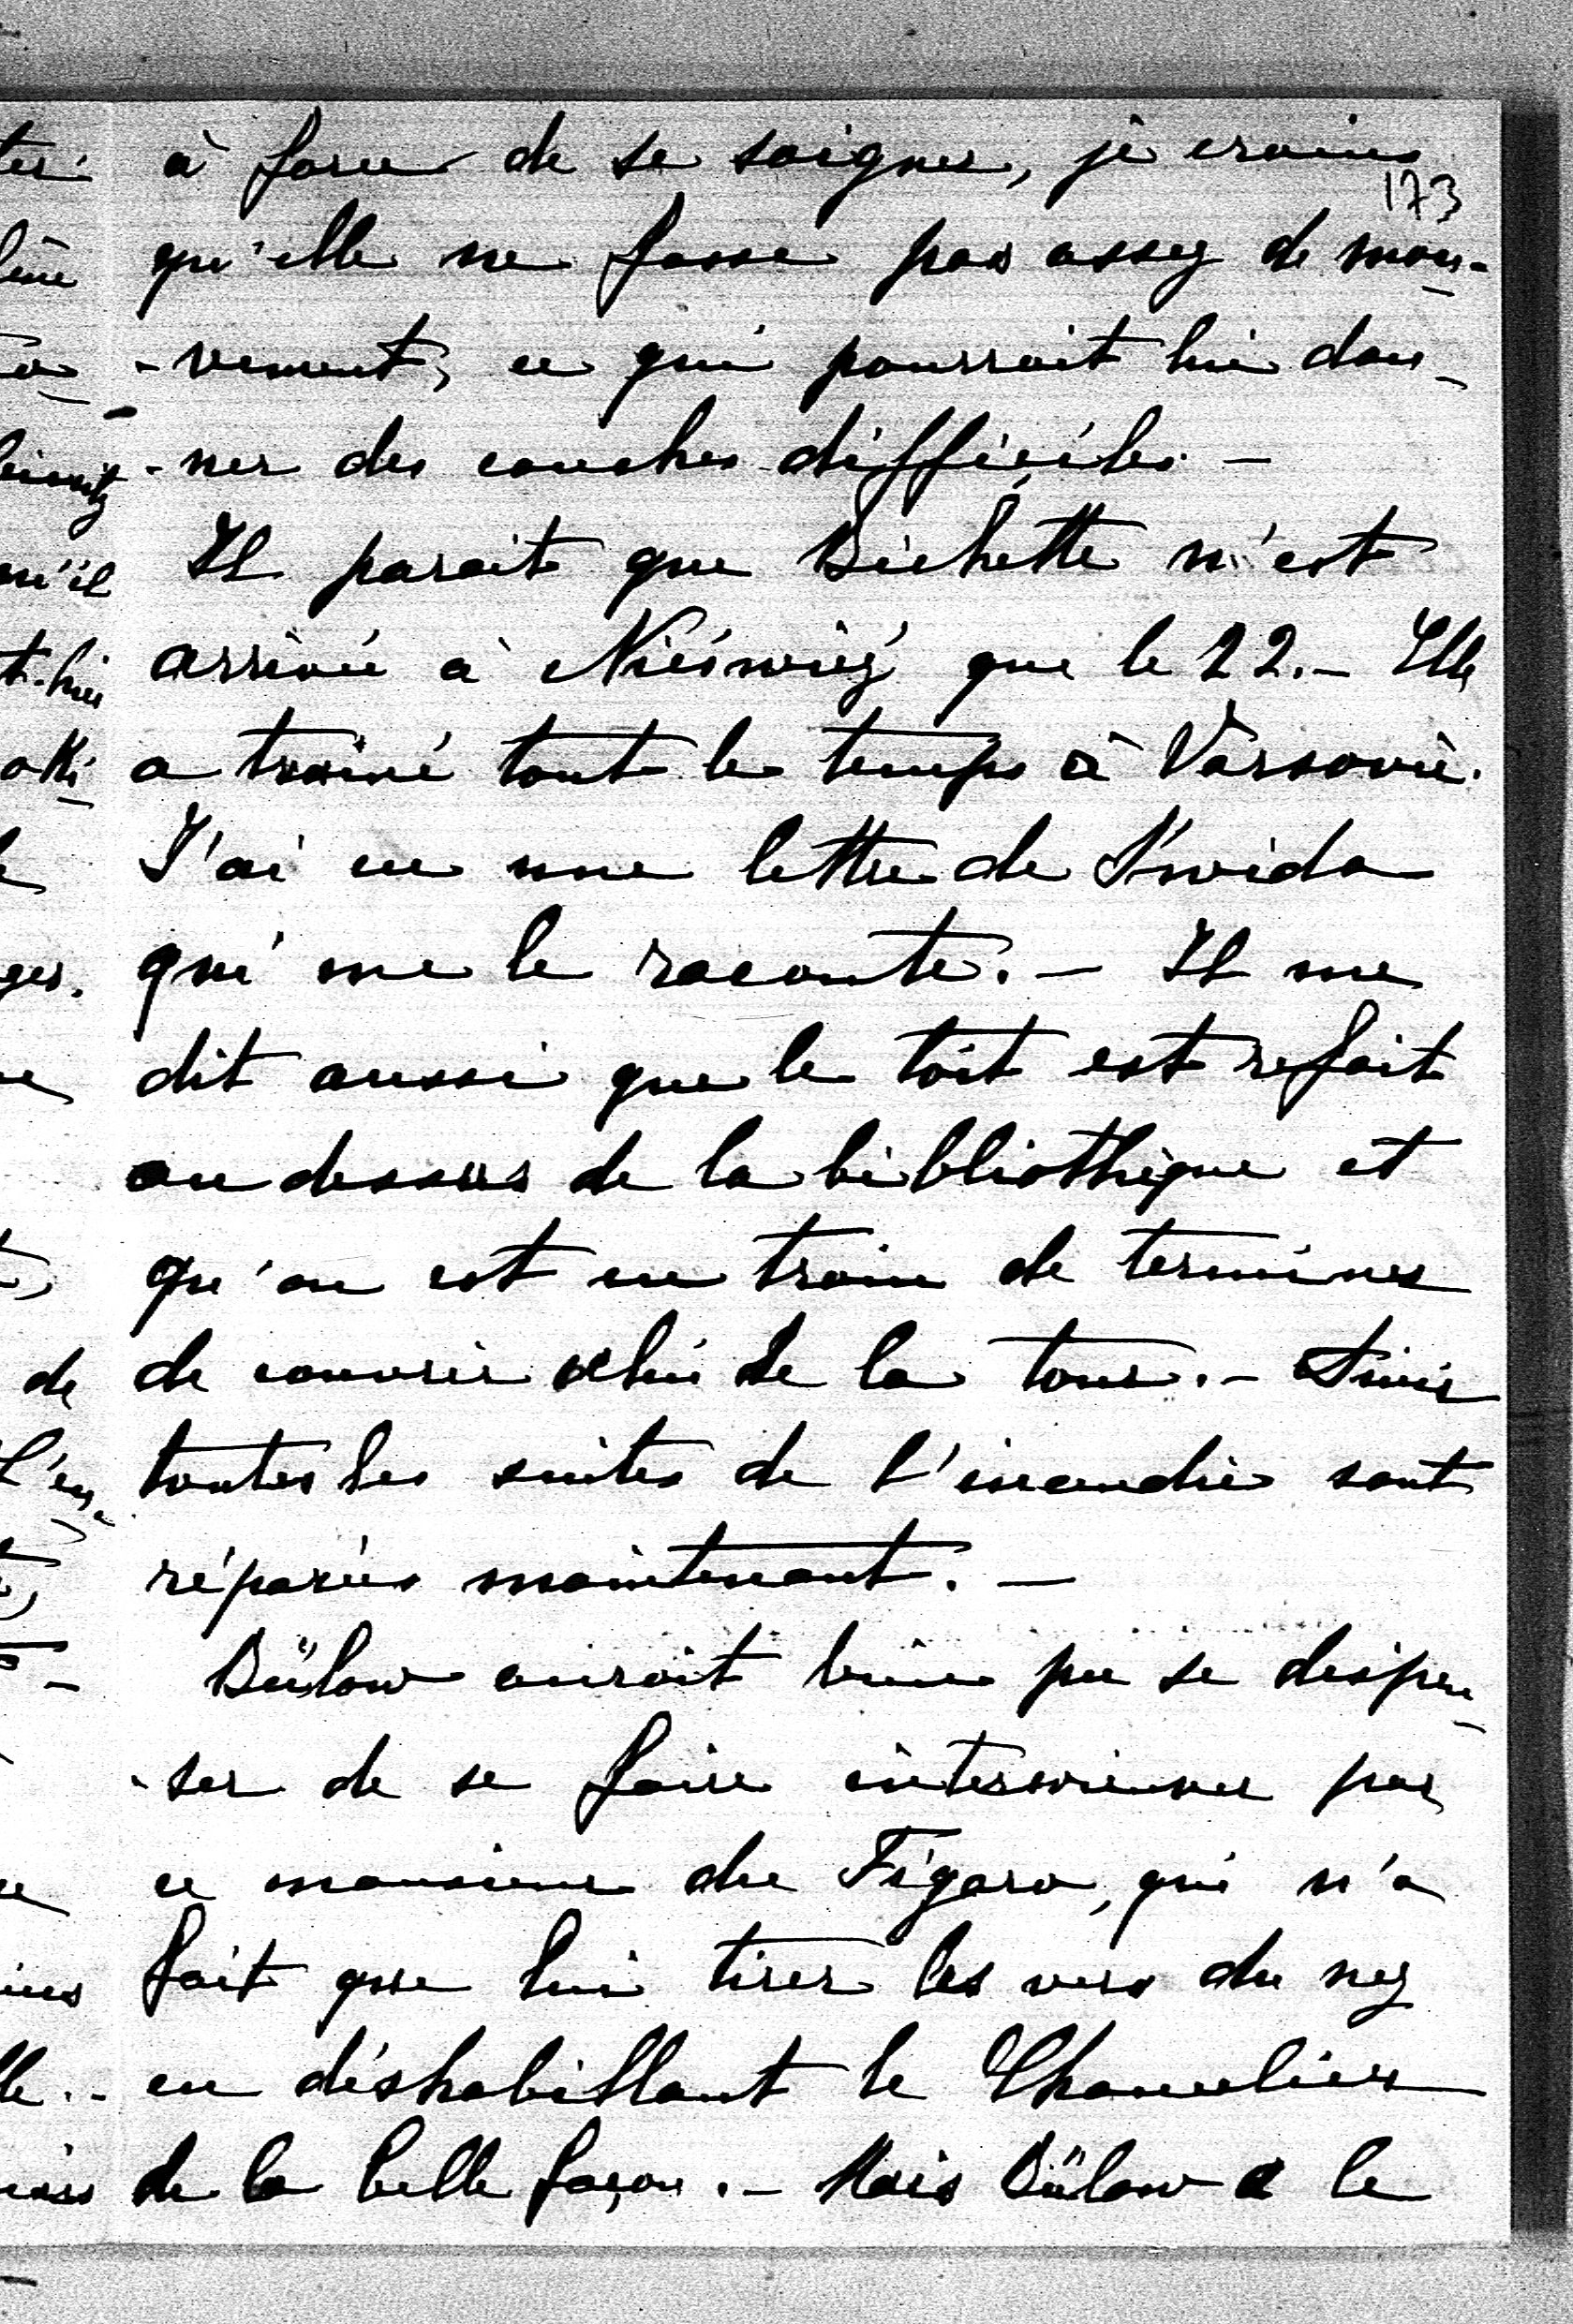 à force de se soigner, je crains
173
qu'elle ne fasse pas assez de mou-
-vement, ce qui pourrait lui don-
-ner des couches difficiles. -
Il parait que Bichette n'est
arrivée à Nieśwież que le 22. - Elle
a trainé tout le temps à Varsovie.
J'ai eu une lettre de Świda
qui me le raconte. - Il me
dit aussi que le toit est refait
au dessus de la bibliothèque et
qu'on est en train de terminer
de couvrir celui de la tour. - Ainsi
toutes les suites de l'incendie sont
réparées maintenant. -
Bülow aurait bien pu se dispen-
-ser de se faire interviewer par
ce monsieur du Figaro, qui n'a
fait que lui tirer les vers du nez
en déshabillant le Chancelier
de la belle façon. - Mais Bülow a le